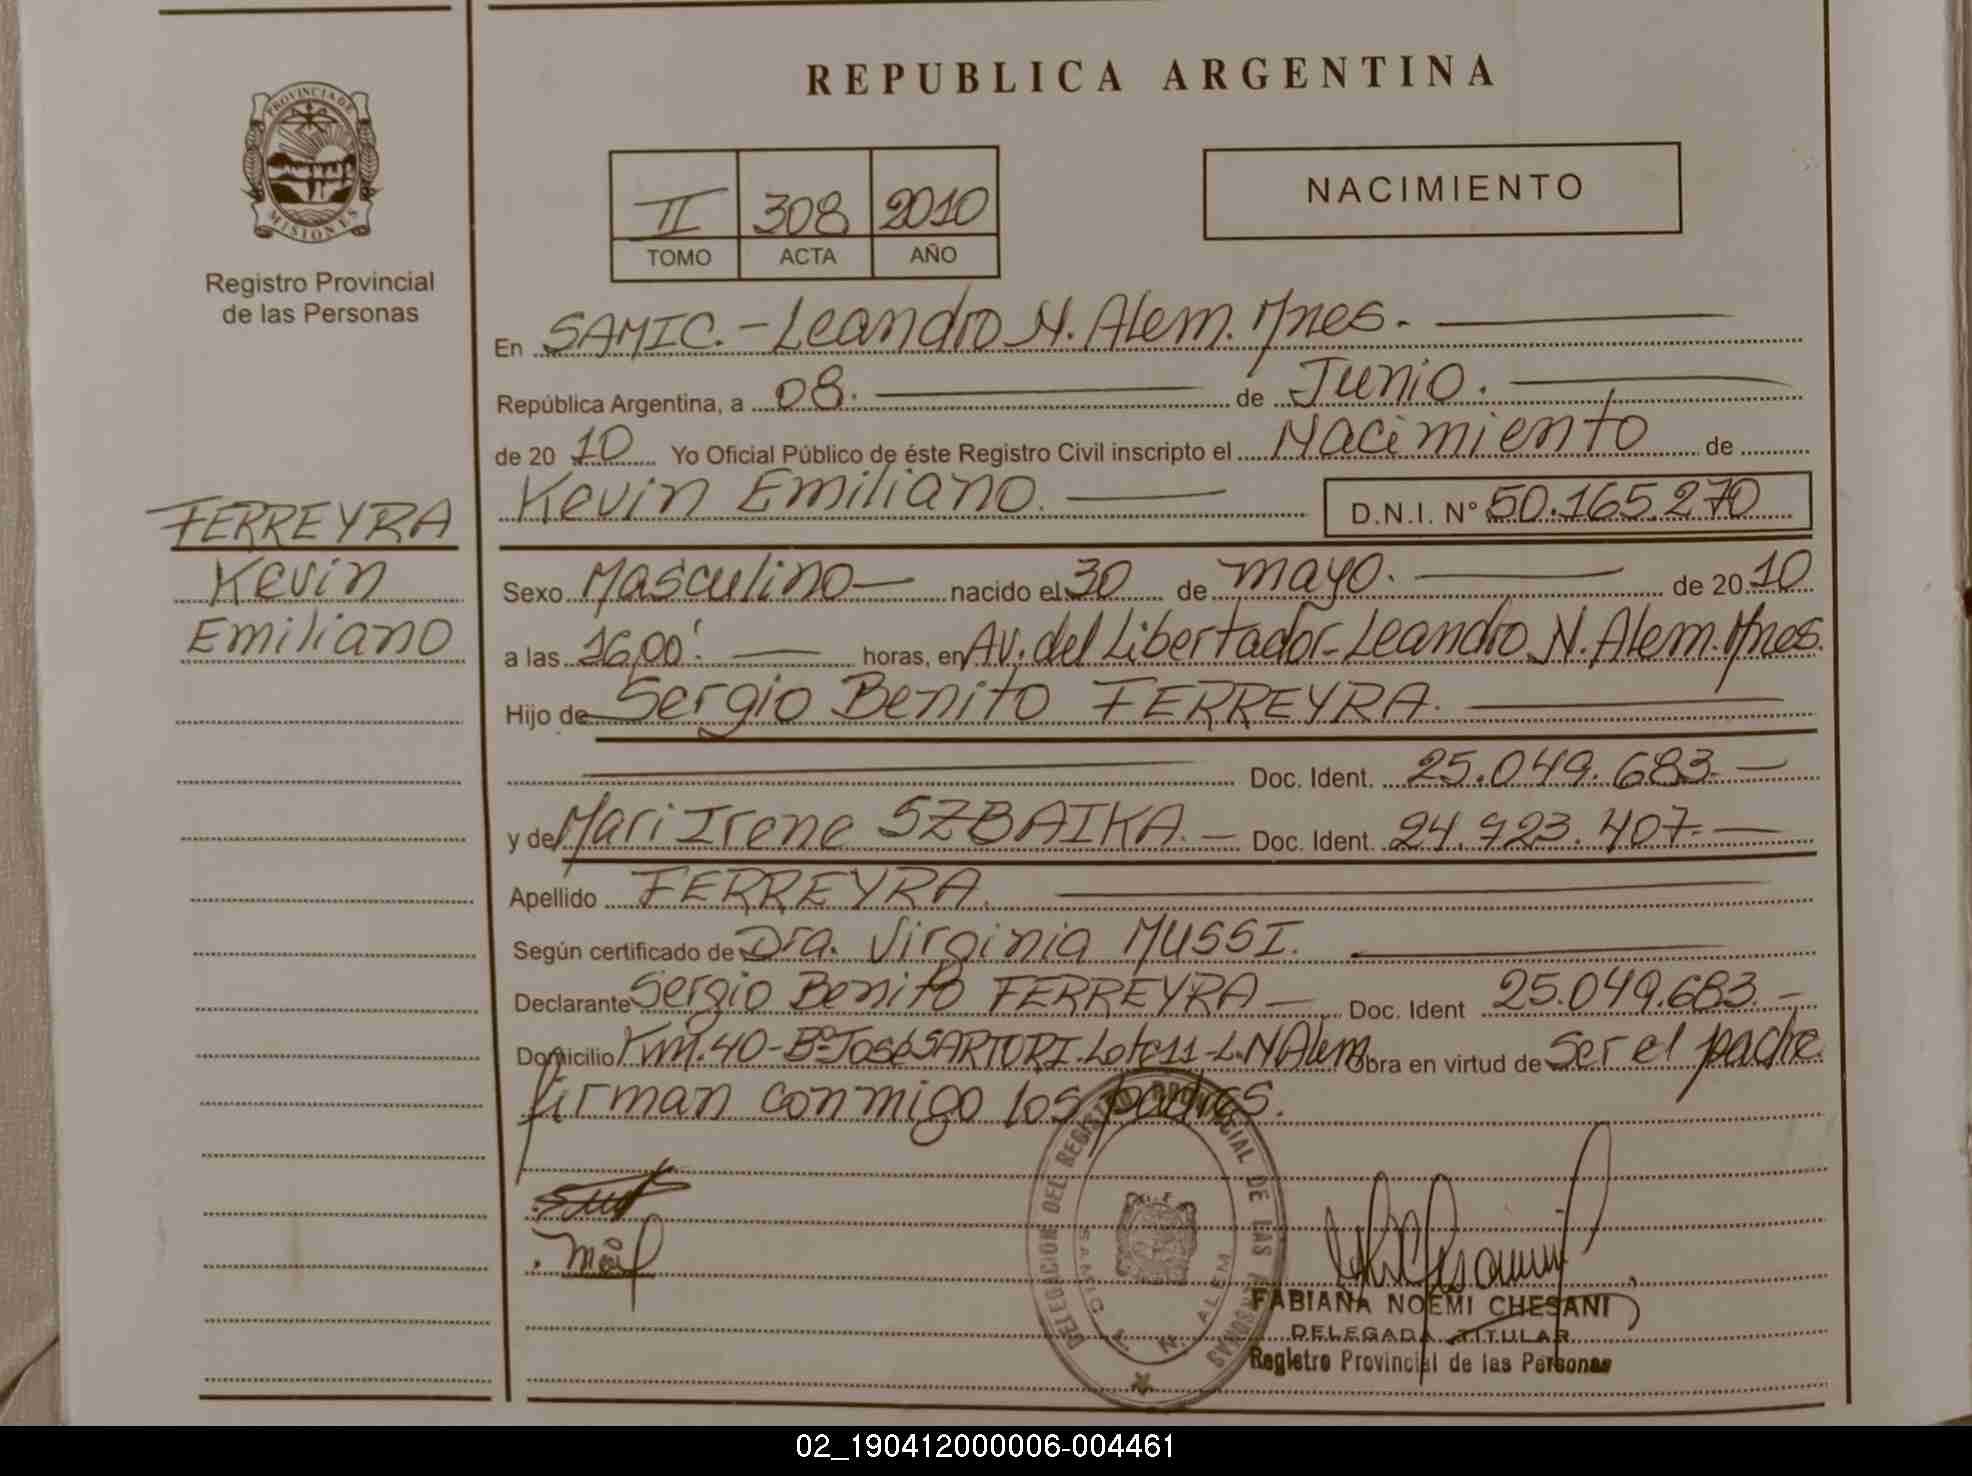 REPUBLICA ARGENTINA
PROVINCIA DE
MISIONES
Registro Provincial
de las Personas
II 308 2010
TOMO ACTA AÑO
NACIMIENTO
En SAMIC.-Leandro N. Alem. Mnes.
República Argentina, a 08. de Junio.
de 2010 Yo Oficial Público de éste Registro Civil inscripto el Nacimiento de
Kevin Emiliano. D.N.I. N° 50.165.270
FERREYRA
Kevin
Emiliano
Sexo Masculino nacido el 30 de mayo. de 2010
a las 16,00' horas, en Av. del Libertador-Leandro N. Alem. Mnes.
Hijo de Sergio Benito FERREYRA.
Doc. Ident. 25.049.683.-
y de Mari Irene SZBAIKA.- Doc. Ident. 24.723.407.-
Apellido FERREYRA.
Según certificado de Dra. Virginia MUSSI.
Declarante Sergio Benito FERREYRA - Doc. Ident 25.049.683.-
Domicilio Km.40-Bº José SARTORI.Lote 11-L.N Alem. Obra en virtud de Ser el padre.
firman conmigo los padres.
DELEGACION DEL REGISTRO PROVINCIAL DE LAS PERSONAS
SAMIC L. N. ALEM
FABIANA NOEMI CHESANI
DELEGADA TITULAR
Registro Provincial de las Personas
02_190412000006-004461